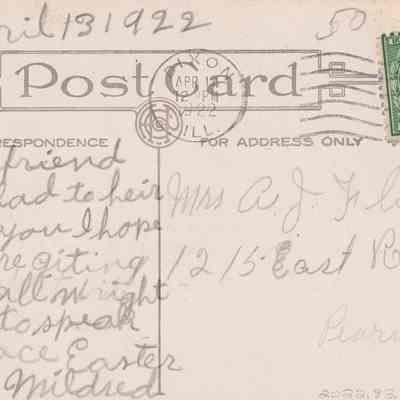 pril 13 1922
50
Post Card
DIXON
APR 13
12 PM
1922
ILL.
RESPONDENCE
FOR ADDRESS ONLY
friend
lad to heir
you I hope
re giting
all wright
to speak
ace Easter
Mildred
Mrs A. J. Fl
1215 East R